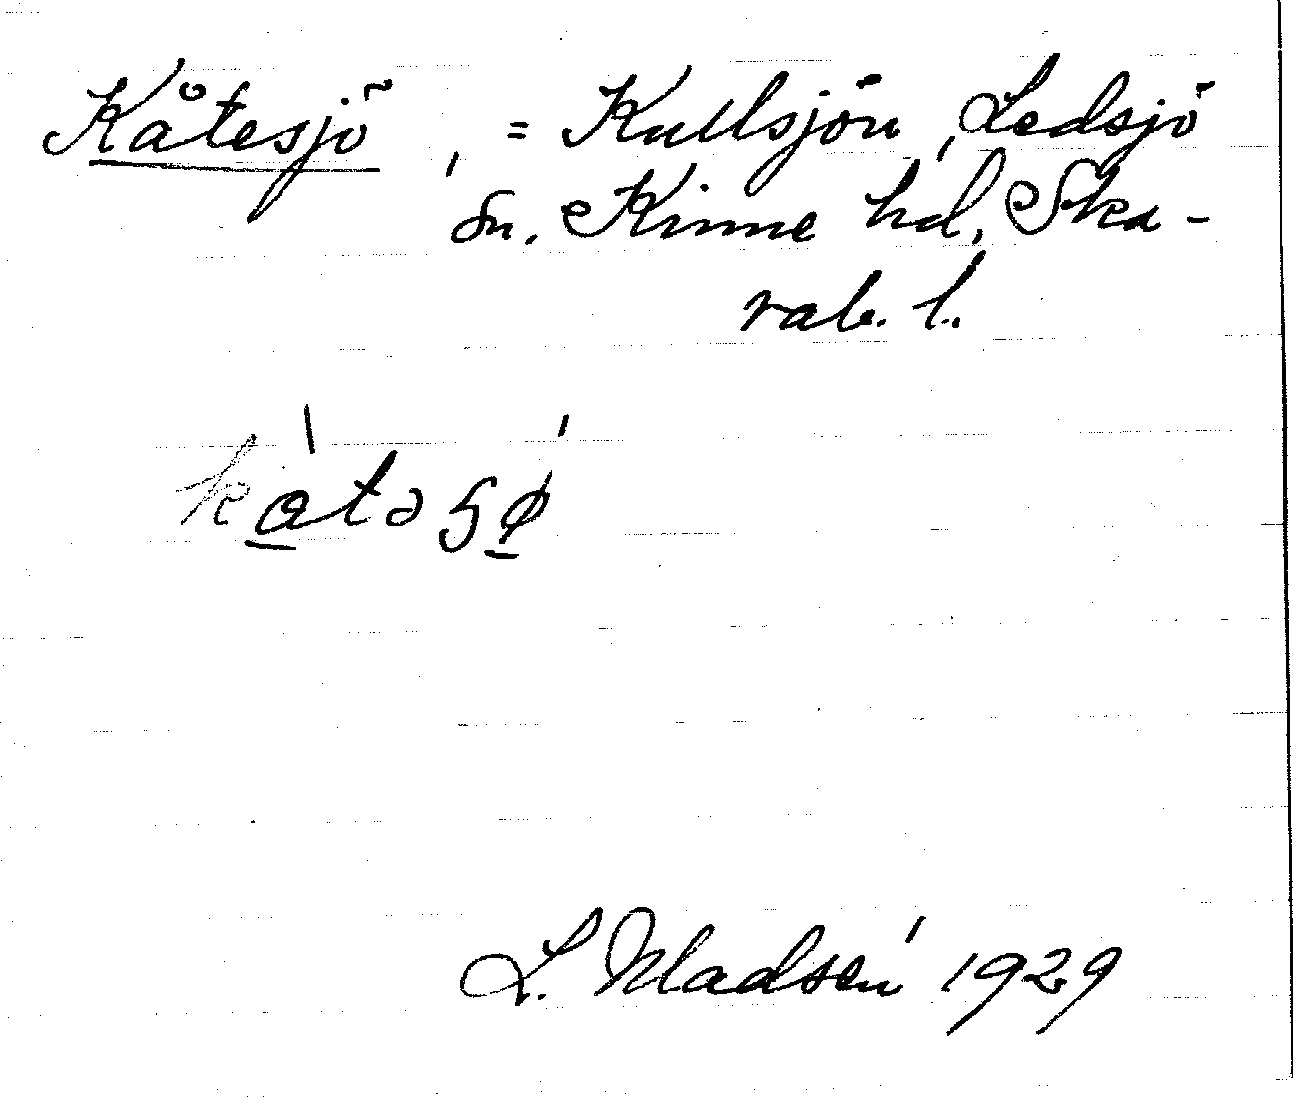 Kåtesjö, = Kullsjön, Ledsjö
sn. Kinne hd, Ska-
rab. l.
kɑ̀təʂø̀
L. Madsén 1929